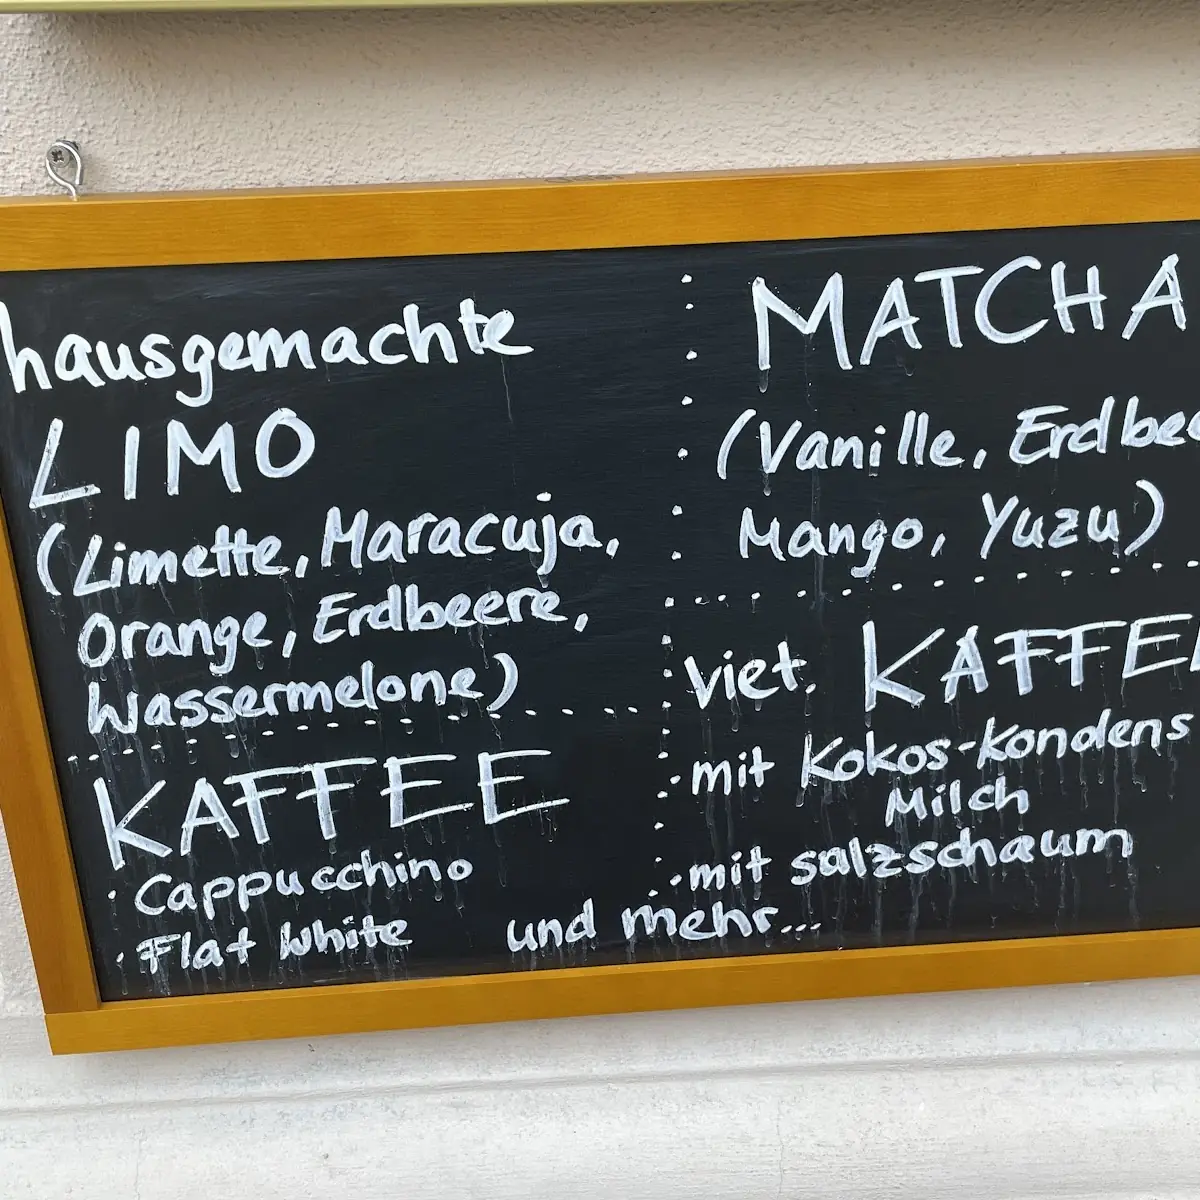 hausgemachte
LIMO
(Limette, Maracuja,
Orange, Erdbeere,
Wassermelone)
KAFFEE
· Cappucchino
· Flat White
und mehr...
MATCHA
(Vanille, Erdbee
Mango, Yuzu)
Viet. KAFFEE
· mit Kokos-Kondens
Milch
· mit salzschaum